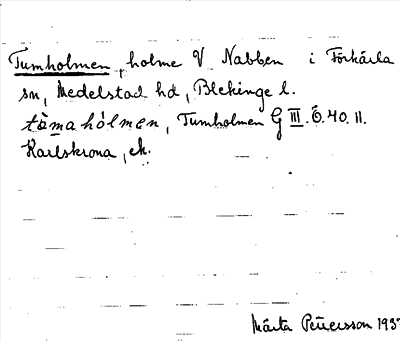 Tumholmen, holme V Nabben i Förkärla
sn, Medelstad hd, Blekinge l.
tòmahólmen, Tumholmen G III. Ö. 40. 11.
Karlskrona, ek.
Märta Petersson